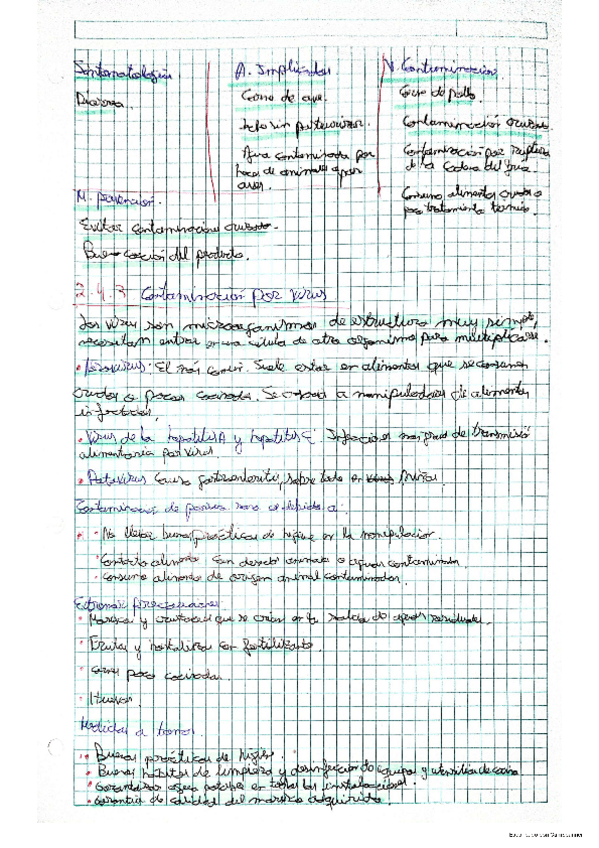 Sintomatología
Diarrea.
A. Implicados
Carne de ave.
Leche sin pasteurizar.
Agua contaminada por
heces de animales o por
aves.
V. Contaminación
Carne de pollo.
Contaminación cruzada
Contaminación por ruptura
de la cadena del frío.
Consumo alimentos crudos o
poco tratamiento térmico.
M. prevención.
Evitar contaminación cruzada.
Buena cocción del producto.
2.4.3 Contaminación por virus
Los virus son microorganismos de estructura muy simple,
necesitan entrar en una célula de otro organismo para multiplicarse.
• Norovirus: El más común. Suele estar en alimentos que se consumen
crudos o pocos cocinados. Se asocia a manipuladores de alimentos
infectados.
• Virus de la hepatitis A y hepatitis E: Infección más grave de transmisión
alimentaria por virus
• Rotavirus Causa gastroenteritis, sobre todo en niños.
Contaminación de debido a:
• No llevar buenas prácticas de higiene en la manipulación.
• Contacto alimento con desechos animales o aguas contaminadas.
• Consumo alimentos de origen animal contaminados.
Extremar precauciones
• Marisco y crustáceos que se crían en la salida de aguas residuales.
• Frutas y hortalizas con fertilizante.
• Carnes poco cocinadas.
• Huevos.
Medidas a tomar
• Buenas prácticas de higiene.
• Buenos hábitos de limpieza y desinfección de equipos y utensilios de cocina
• Garantizar agua potable en todas las instalaciones.
• Garantía de calidad del marisco adquirido.